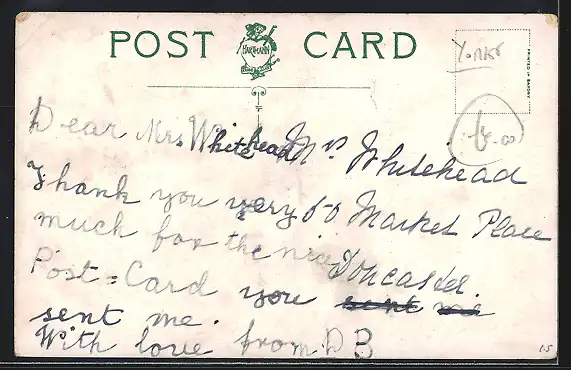 POST CARD
HARTMANN
PRINTED IN SAXONY
Yorks
6-00
Dear Mrs Whitehead
Thank you very
much for the nice
Post-Card you sent me
sent me.
With love from D B
Mrs Whitehead
60 Market Place
Doncaster.
15